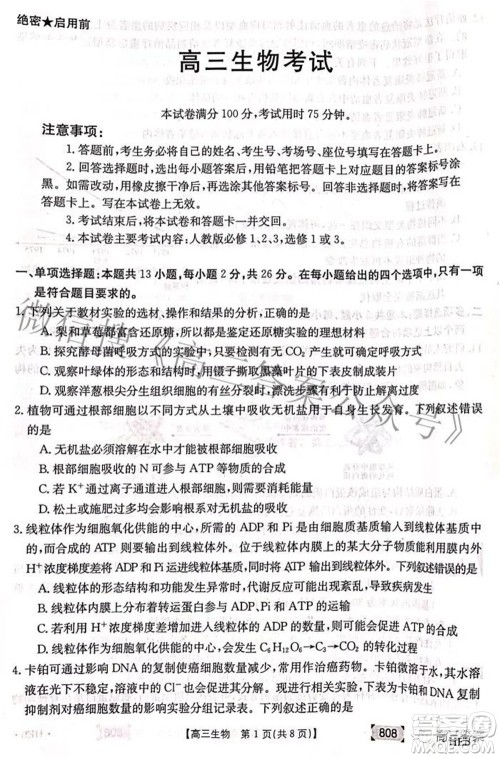 绝密★启用前
高三生物考试
本试卷满分100分,考试用时75分钟。
注意事项:
1. 答题前,考生务必将自己的姓名、考生号、考场号、座位号填写在答题卡上。
2. 回答选择题时,选出每小题答案后,用铅笔把答题卡上对应题目的答案标号涂
黑。如需改动,用橡皮擦干净后,再选涂其他答案标号。回答非选择题时,将答案写在
答题卡上。写在本试卷上无效。
3. 考试结束后,将本试卷和答题卡一并交回。
4. 本试卷主要考试内容:人教版必修1,2,3,选修1或3。
一、单项选择题:本题共13小题,每小题2分,共26分。在每小题给出的四个选项中,只有一项
是符合题目要求的。
1. 下列关于教材实验的选材、操作和结果的分析,正确的是
A. 梨和草莓都富含还原糖,都是鉴定还原糖实验的理想材料
B. 探究酵母菌呼吸方式的实验中,只要检测有无CO₂产生就能确定呼吸方式
C. 观察叶绿体的形态时,用镊子撕取黑藻叶片的下表皮制成装片
D. 观察洋葱根尖分生组织细胞的有丝分裂实验中,用盐酸进行解离防止细胞过度分离
2. 植物可通过根部细胞以不同方式从土壤中吸收无机盐用于自身生长发育。下列叙述错误
的是
A. 无机盐必须溶解在水中才能被根部细胞吸收
B. 根部细胞吸收的N可参与ATP等物质的构成
C. 若K⁺通过离子通道进入根细胞,则需要消耗能量
D. 松土或施肥过多均会影响根系对无机盐的吸收
3. 线粒体作为细胞氧化供能的中心,所需的ADP和Pi是由细胞质基质输入到线粒体基质中
的,而合成的ATP则要输出到线粒体外。位于线粒体内膜上的某大分子物质能利用膜内外
H⁺浓度梯度差将ADP和Pi运进线粒体基质,同时将ATP运出线粒体。下列叙述错误的是
A. 线粒体的形态结构和功能发生异常时,代谢反应可能出现紊乱,导致疾病发生
B. 线粒体内膜两侧H⁺浓度梯度差的形成与ADP和ATP的运输有关
C. 若利用H⁺浓度梯度差运进的ADP的数量增加,则可产生更多的ATP
D. 线粒体作为细胞氧化供能的中心,会发生C₆H₁₂O₆→C₃→CO₂的转化过程
4. 卡铂可通过影响DNA的复制使癌细胞数量变少,常作为治癌药物。卡铂微溶于水,其水
溶液性质不稳定,溶液中的Cl⁻也会加速卡铂的降解。下表为某科研人员探究一定浓度的
卡铂对癌细胞数量影响的实验分组记录表。下列叙述正确的是
【高三生物 第1页(共8页)】
808
微信搜《高三答案公众号》